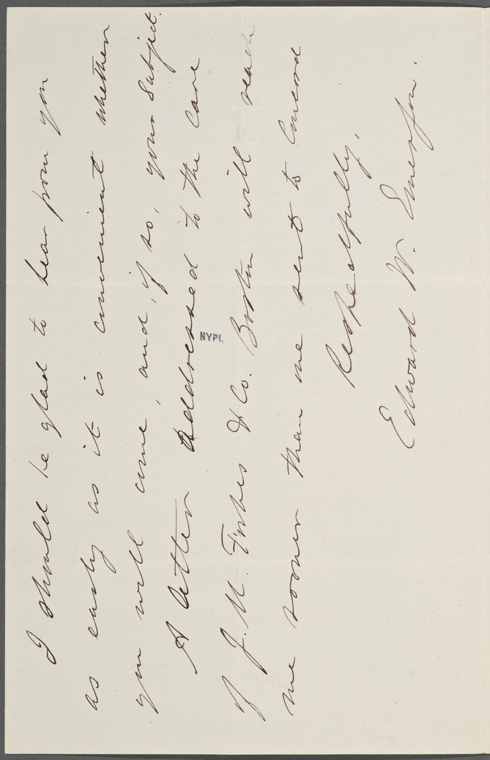 I should be glad to hear from you
as early as it is convenient whether
you will come, and, if so, your subject.
A letter addressed to the care
of J. M. Forbes & Co. Boston will reach
me sooner than one sent to Concord
Respectfully,
Edward W. Emerson.
NYPL